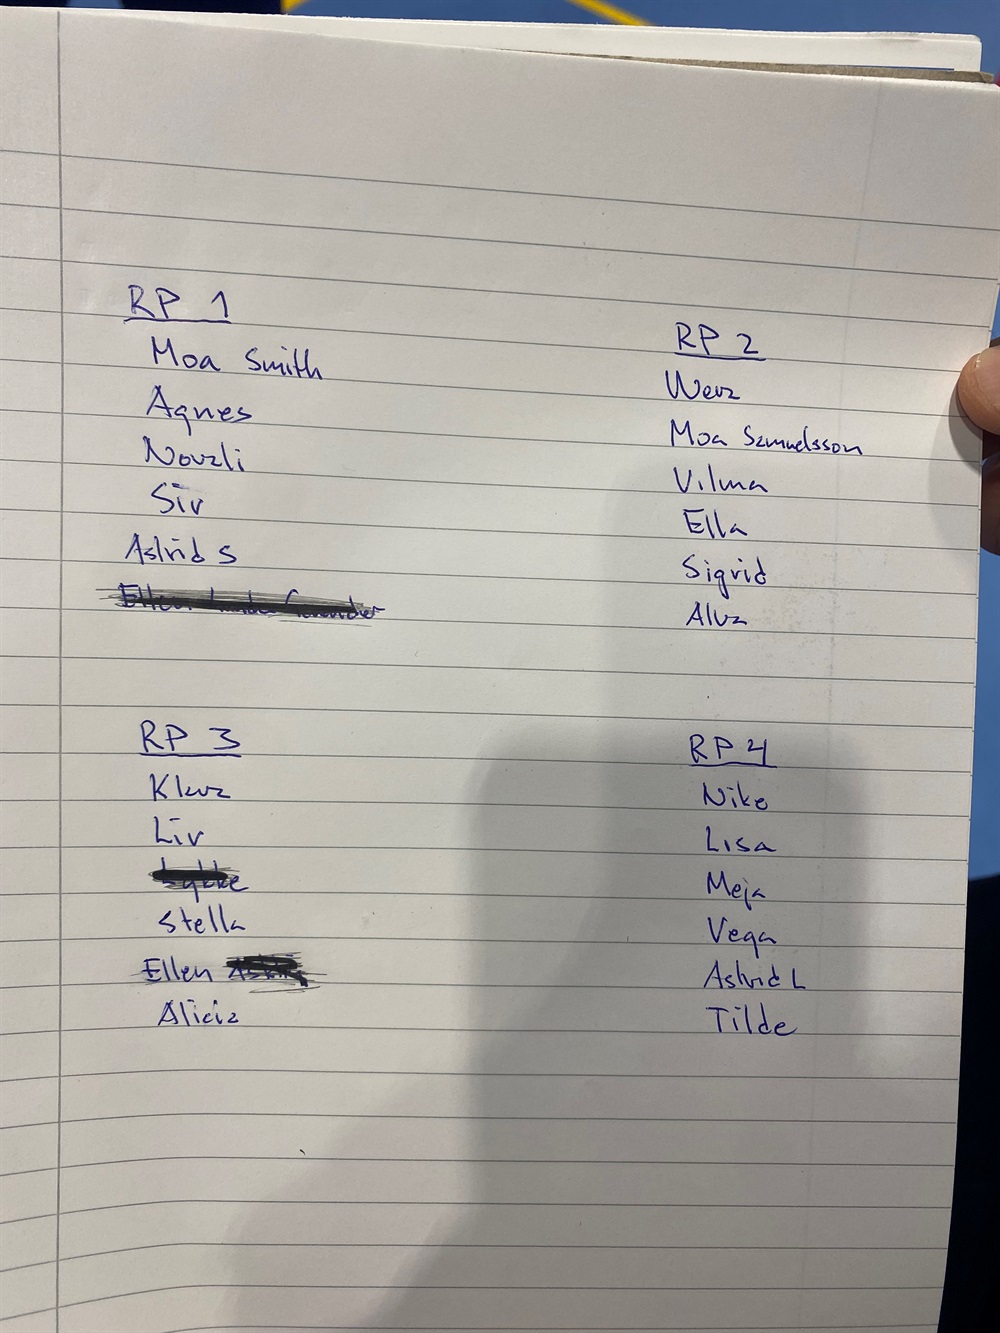 RP 1
Moa Smith
Agnes
Novali
Siv
Astrid S
Ellen
RP 2
Wera
Moa Samuelsson
Vilma
Ella
Sigrid
Alva
RP 3
Klara
Liv
Lykke
Stella
Ellen
Alicia
RP 4
Nike
Lisa
Meja
Vega
Astrid L
Tilde